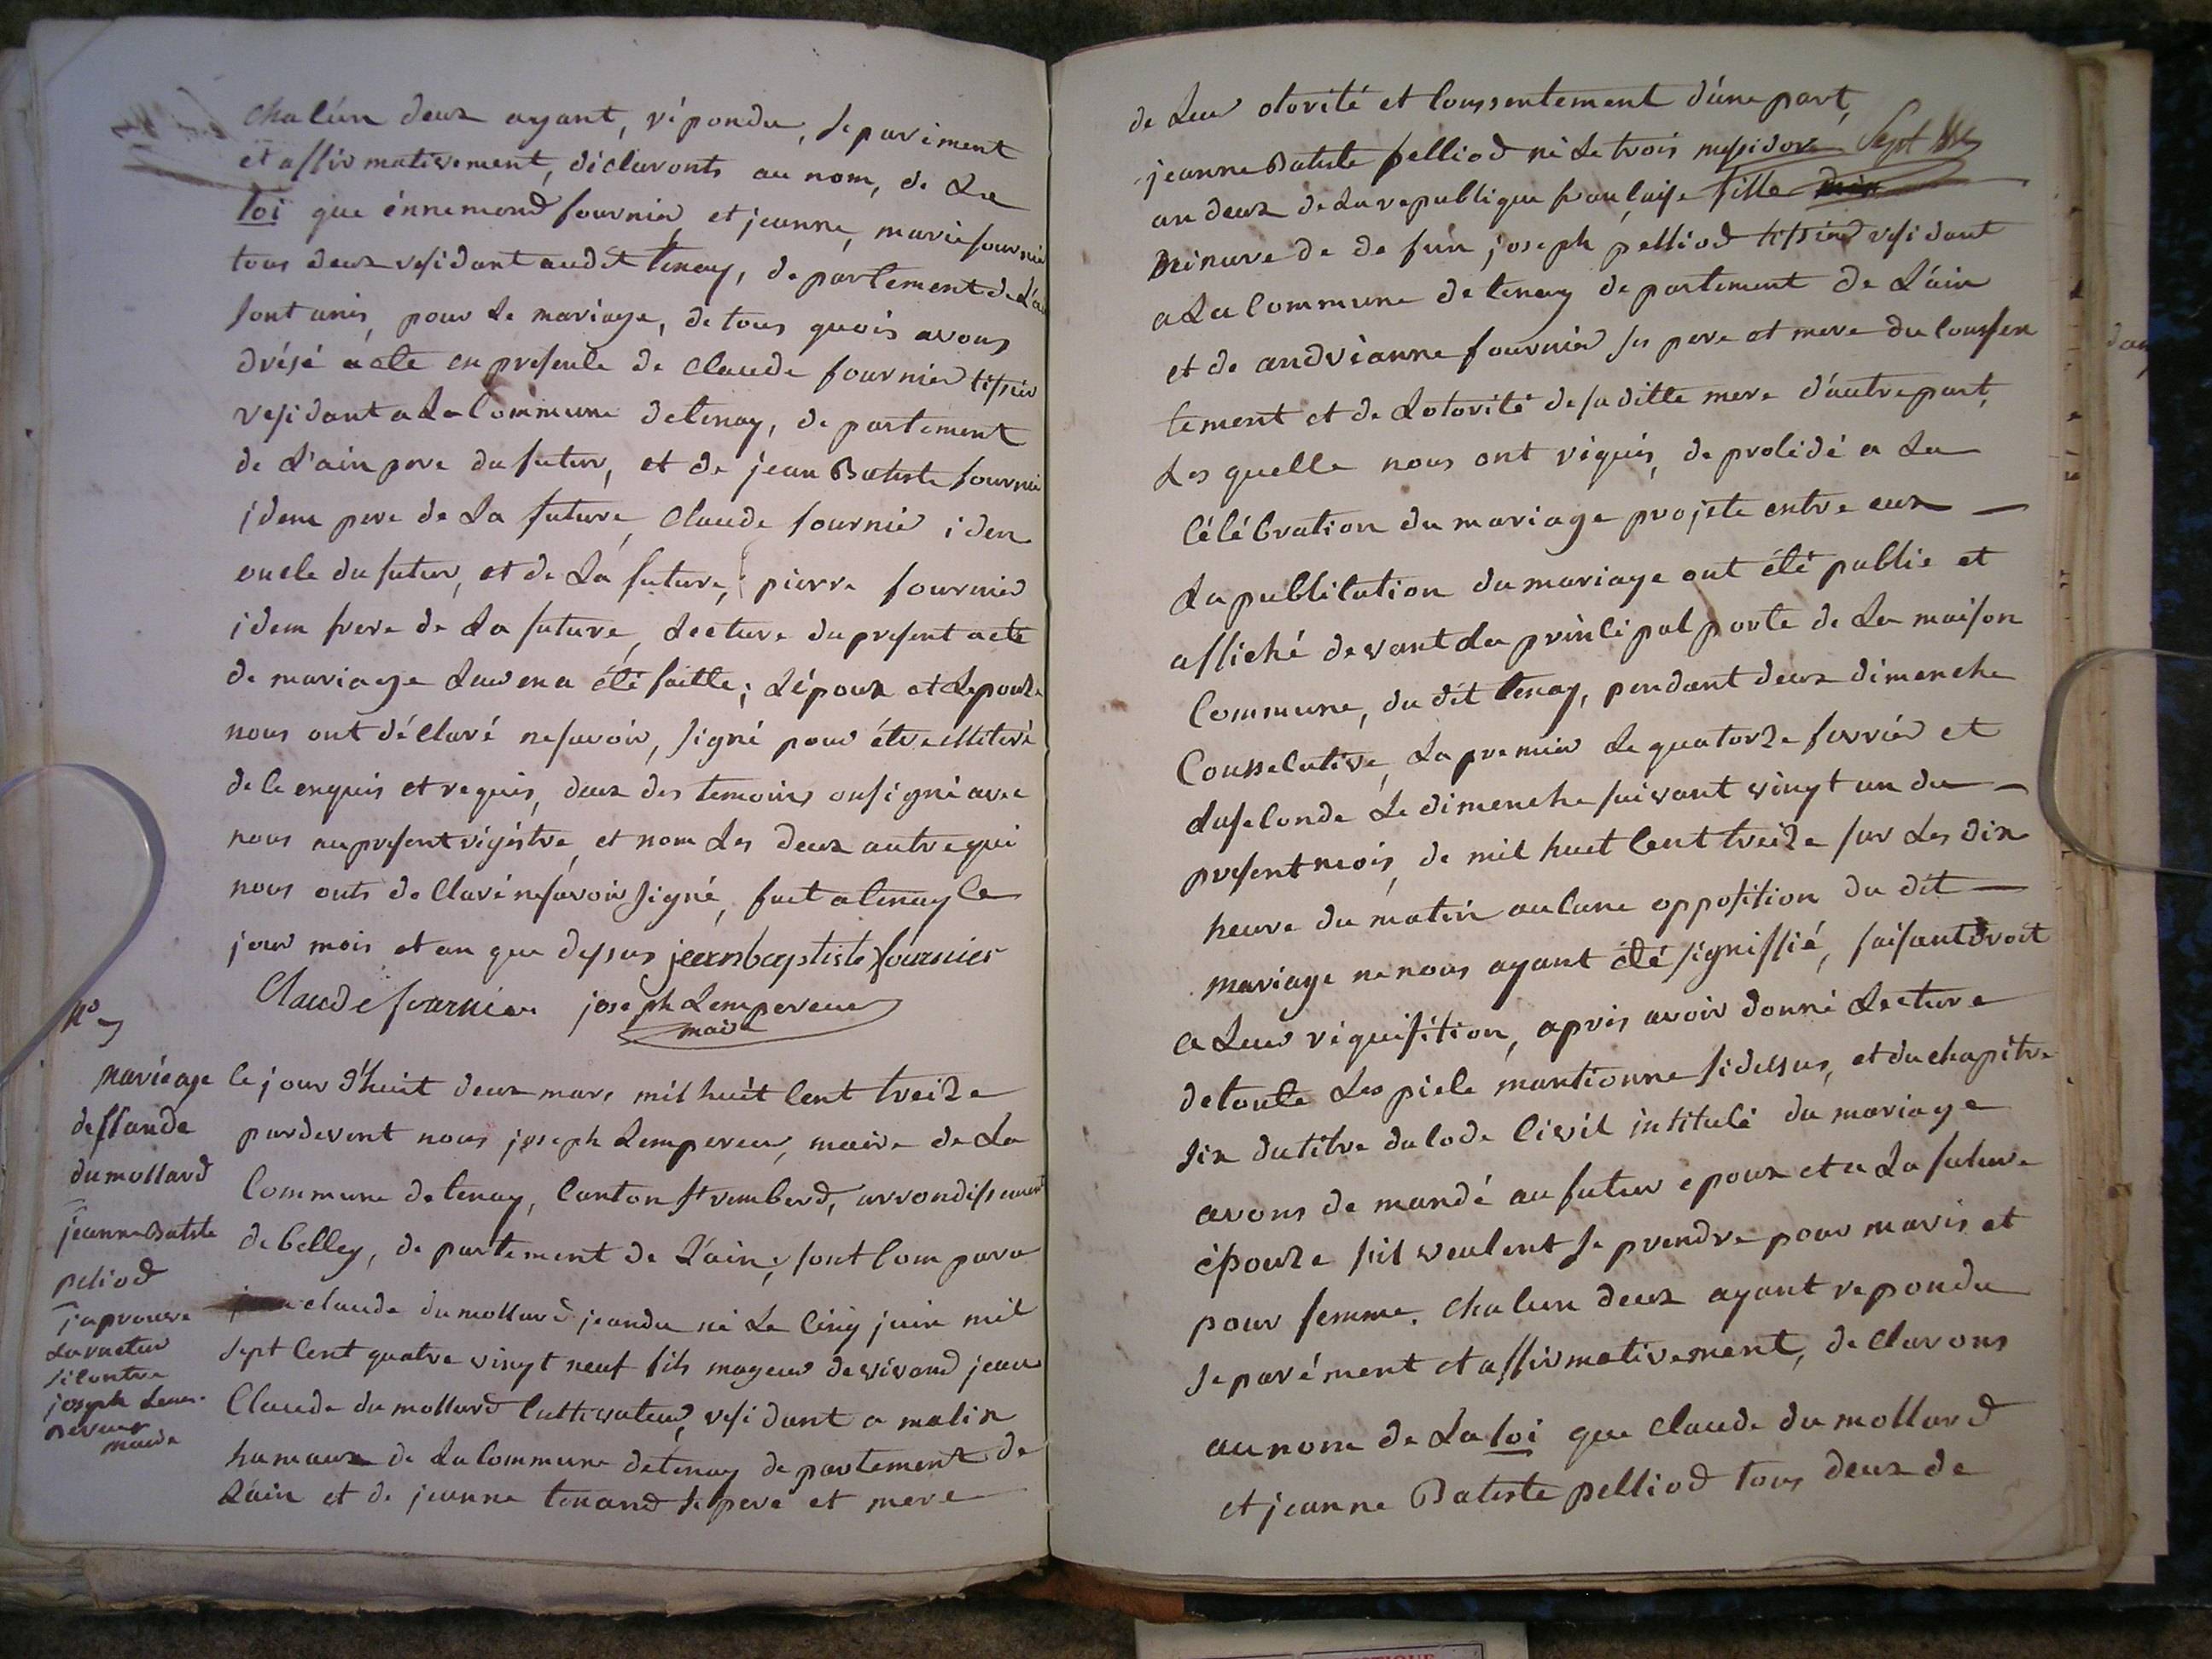 chacún deux ayant, répondu, séparément
et affirmativement, déclaronts au nom, de La
loi que énnemond fournier et jeanne, marie fournier
tous deux residant audit tenay, departement de L'ain
sont unis, pour le mariage, de tous quois avons
drésé acte en presence de Claude fournier tissier
residant a La Commune de tenay, departement
de L'ain pere du futur, et de jean Batiste fournier
idem pere de La future, Claude fournier idem
oncle du futur, et de La future, pierre fournier
idem frere de La future, Lecture du present acte
de mariage Leur en a été faitte; L'époux et Lepouze
nous ont déclaré ne savoir, signé pour étre illiteré
de ce enquis et requis, deux des temoins on signé avec
nous au present régistre, et nom Les deux autre qui
nous onts declaré ne savoir signé, fait a tenay le
jour mois et an que dessus jeanbaptiste fournier
Claude fournier joseph Lempereur
maire
N° 7
mariéage
de Claude
dumollard
jeanne Batiste
peliod
j'aprouve
La rature
si contre
joseph Lem-
pereur
maire
ce jour d'huit deux mars mil huit cent treize
pardevent nous joseph Lempereur, maire de La
Commune de tenay, Canton St rembert, arrondissement
de belley, departement de L'ain, sont Comparu
claude dumollard jeandu né Le cinq juin mil
sept cent quatre vingt neuf fils mageur de vivand jean
Claude dumollard Cultivateur, residant a malix
hameaux de La Commune de tenay departement de
L'ain et de jeanne tenand se pere et mere
de Leur otorité et Conssentement d'une part,
jeanne Batiste pelliod né Le trois messidore Sept
an deux de La republique française fille
minure de de fun joseph pelliod tissier residant
a La Commune de tenay departement de L'ain
et de andréanne fournier ses pere et mere du Conssen
tement et de Lotorité de sa ditte mere d'autre part,
Les quelle nous ont réquis, de procédé a La
célébration du mariage projeté entre eux
La publication du mariage ont été publie et
affiché devant La principal porte de La maison
Commune, du dit tenay, pendant deux dimenche
Conssecutive, La premier Le quatorze fevrier et
La seconde Le dimenche suivant vingt un du
present mois, de mil huit cent treize sur Les dix
heure du matin aucune opposition du dit
mariage ne nous ayant été signiffié, faisant droit
a Leur réquisition, aprés avoir donné Lecture
de toute Les piece mantionne sidessus, et du chapitre
six du titre du Code Civil intitulé du mariage
avons demandé au futur epoux et a La future
épouze s'il veulent se prendre pour maris et
pour femme. chacun deux ayant repondu
separément et affirmativement, declarons
au nom de La loi que Claude dumollard
et jeanne Batiste pelliod tous deux de